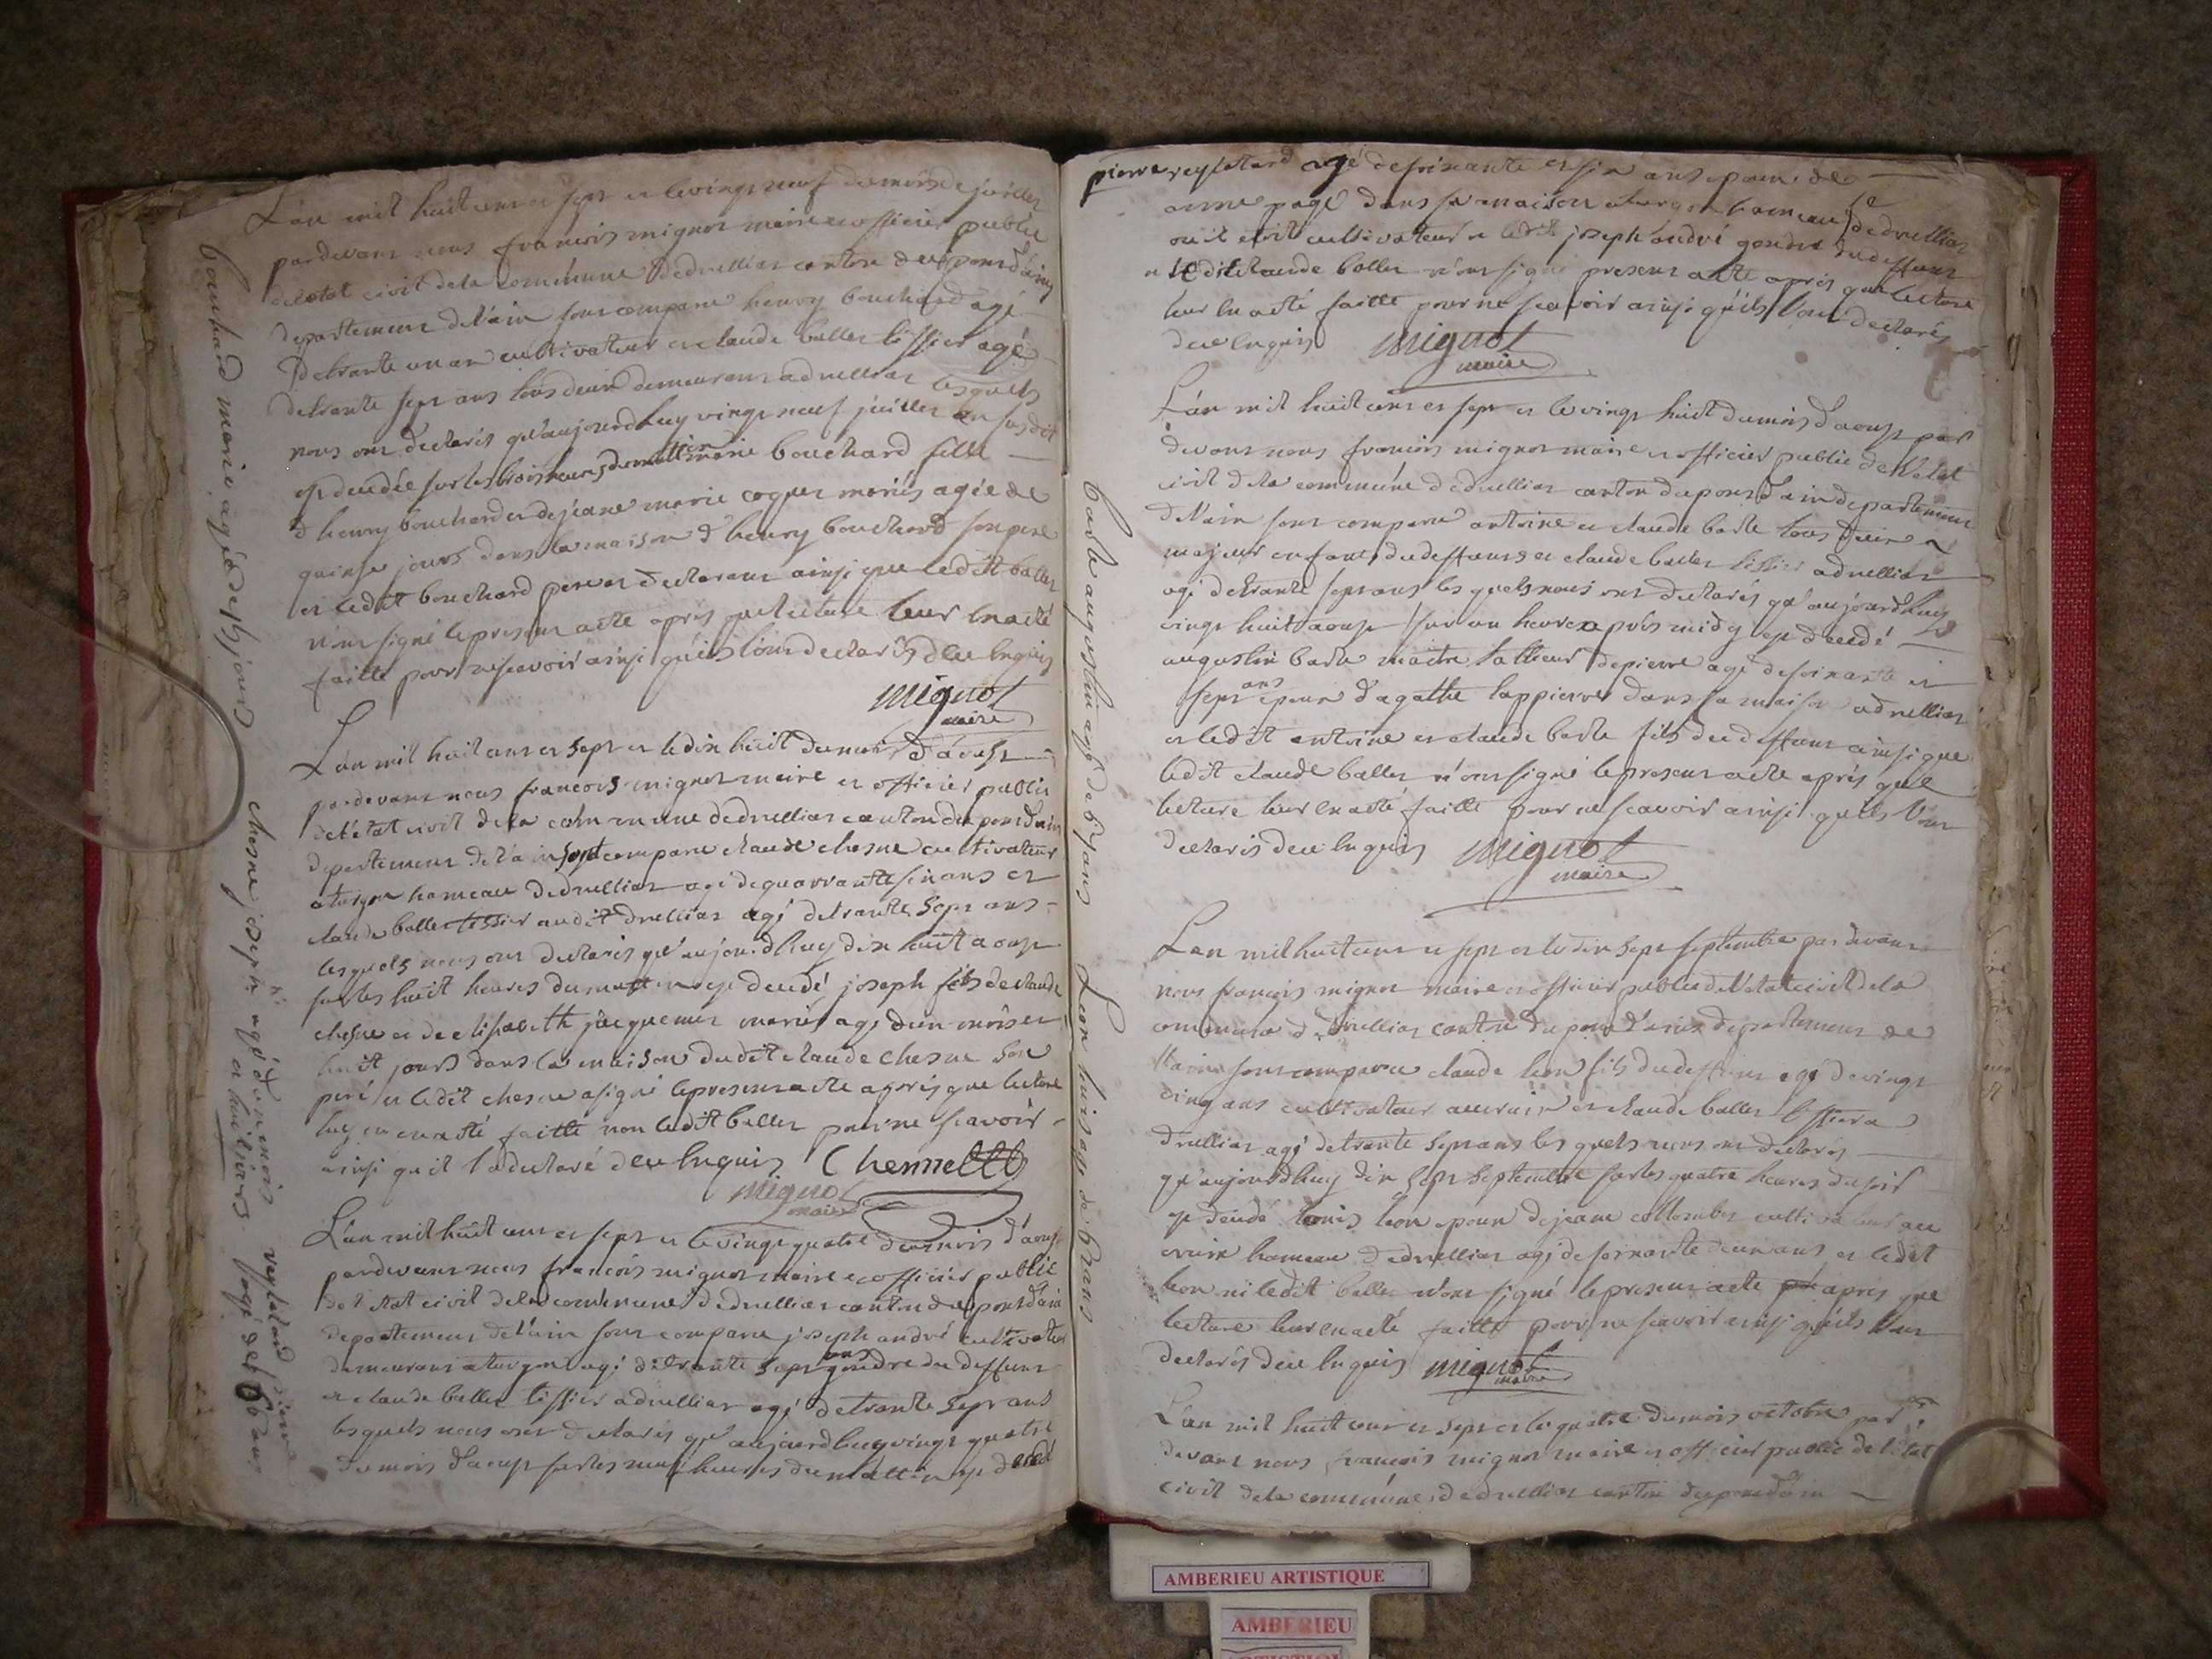 L'an mil huit cens et sept et le vingt neuf du mois de juillet
pardevant nous francois mignot maire et officier public
de l'etat civil de la commune de druillias canton du pont d'ain
departement de l'ain sont comparu henry bouchard agé
de trante un an cultivateur et claude ballet tissier agé
de trante sept ans tous deux demeurant a druillias lesquels
nous ont declarés qu'aujourdhuy vingt neuf juillet an susdit
est decedée sur les trois heures du mattin marie bouchard fille
d henry bouchard et de jeane marie coquet mariés agée de
quinse jours dans la maison d henry bouchard son pere
et ledit bouchard pere et declarant ainsi que ledit ballet
n'ont signé le present acte apres que lecture leur en a eté
faitte pour ne scavoir ainsi qu'ils l'ont declarés de ce enquis
mignot
maire
bouchard marie agée de 15 jours
L'an mil huit cens et sept et le dix huit du mois d'aoust
pardevant nous francois mignot maire et officier public
de l'etat civil de la commune de druillias canton du pont d'ain
departement de l'ain sont comparu claude chesne cultivateur
a turgon hameau de druillias agé de quarrantte six ans et
claude ballet tissier audit druillias agé de trante sept ans
lesquels nous ont declarés qu'aujourdhuy dix huit aoust
sur les huit heures du mattin est decedé joseph fils de claude
chesne et de elisabeth jacquemet mariés agé d'un mois et
huit jours dans la maison dudit claude chesne son
peré et ledit chesne a signé le present acte apprés que lecture
luy en en a eté faitte non ledit ballet pour ne scavoir
ainsi qu'il l'a declaré de ce enquis Chenne
mignot
maire
chesne joseph agé d'un mois
et huit jours
L'an mil huit cens et sept et le vingt quatre du mois d'aoust
pardevant nous francois mignot maire et officier public
de l'etat civil de la commune de druillias canton du pont d'ain
departement de l'ain sont comparu joseph andré cultivateur
demeurant a turgon agé de trante sept ans gendre du deffunt
et claude ballet tissier a druillias agé de trante sept ans
lesquels nous ont declarés qu'aujourdhuy vingt quatre
du mois d'aoust sur les neuf heures du mattin est decedé
pierre
agé de 66 ans
pierre reylotard agé de soixante et six ans epoux de
anne pagé dans sa maison a turgon hameau de druillias
ou il etoit cultivateur et ledit joseph andré gendre du deffunt
et ledit claude ballet n'ont signé present acte apres que lecture
leur en a eté faitte pour ne scavoir ainsi qu'ils l'ont declarés
de ce enquis mignot
maire
L'an mil huit cens et sept et le vingt huit du mois d'aoust par
devant nous francois mignot maire et officier public de l'etat
civil de la commune de druillias canton du pont d'ain departement
de l'ain sont comparu antoine et claude barle tous deux
majeur enfants du deffunt et claude ballet tissier a druillias
agé de trante sept ans lesquels nous ont declarés qu'aujourdhuy
vingt huit aoust sur un heure apprés midy est decedé
augustin barle maitre tallieur de pierre agé de soixante et
sept ans epoux d'agathe lappierre dans sa maison a druillias
et ledit antoine et claude barle fils du deffunt ainsi que
ledit claude ballet n'ont signé le present acte apres que
lecture leur en a eté faitte pour ne scavoir ainsi qu'ils l'ont
declarés de ce enquis mignot
maire
barle augustin agé de 67 ans
L'an mil huit cens et sept et le dix sept septembre par devant
nous francois mignot maire et officier public de l'etat civil de la
commune de druillias canton du pont d'ain departement de
l'ain sont comparu claude leon fils du deffunt agé de vingt
cinq ans cultivateur et claude ballet tissier a
druillias agé de trante sept ans lesquels nous ont declarés
qu'aujourdhuy dix sept septembre sur les quatre heures du soir
est decedé louis leon epoux de jeane collombet cultivateur au
hameau de druillias agé de soixante deux ans et ledit
leon ni ledit ballet n'ont signé le present acte apres que
lecture leur en a eté faitte pour ne scavoir ainsi qu'ils l'ont
declarés de ce enquis mignot
maire
Leon louis agé de 62 ans
L'an mil huit cens et sept et le quatre du mois octobre par
devant nous francois mignot maire et officier public de l'etat
civil de la commune de druillias canton du pont d'ain
AMBERIEU ARTISTIQUE
AMBERIEU
ARTISTIQUE